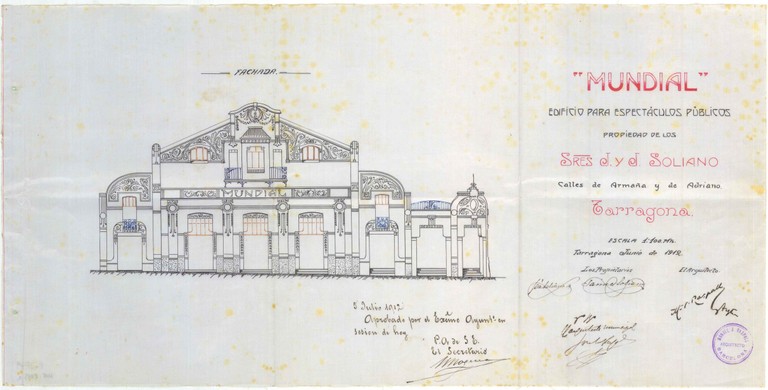 FACHADA.
MUNDIAL
"MUNDIAL"
EDIFICIO PARA ESPECTÁCULOS PÚBLICOS
PROPIEDAD DE LOS
SRES J. Y J. SOLIANO
Calles de Armañá y de Adriano.
Tarragona.
ESCALA 1:100 M/M
Tarragona Junio de 1912.
Los Propietarios
El Arquitecto
2 Julio 1912
Aprobado por el Excmo Ayunto en
sesion de hoy
P.A. de S.E.
El Secretario
Vº Bº
ARQUITECTO
BARCELONA